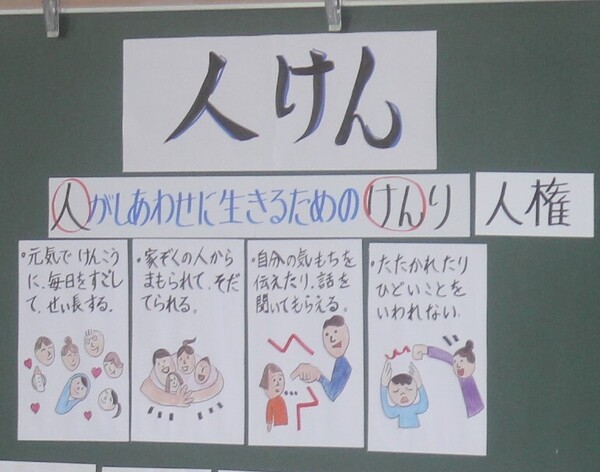 人けん
人がしあわせに生きるためのけんり
人権
・元気で けんこう
に、毎日をすごし
て、せい長する。
・家ぞくの人から
まもられて、そだ
てられる。
・自分の気もちを
伝えたり、話を
聞いてもらえる。
・たたかれたり
ひどいことを
いわれない。